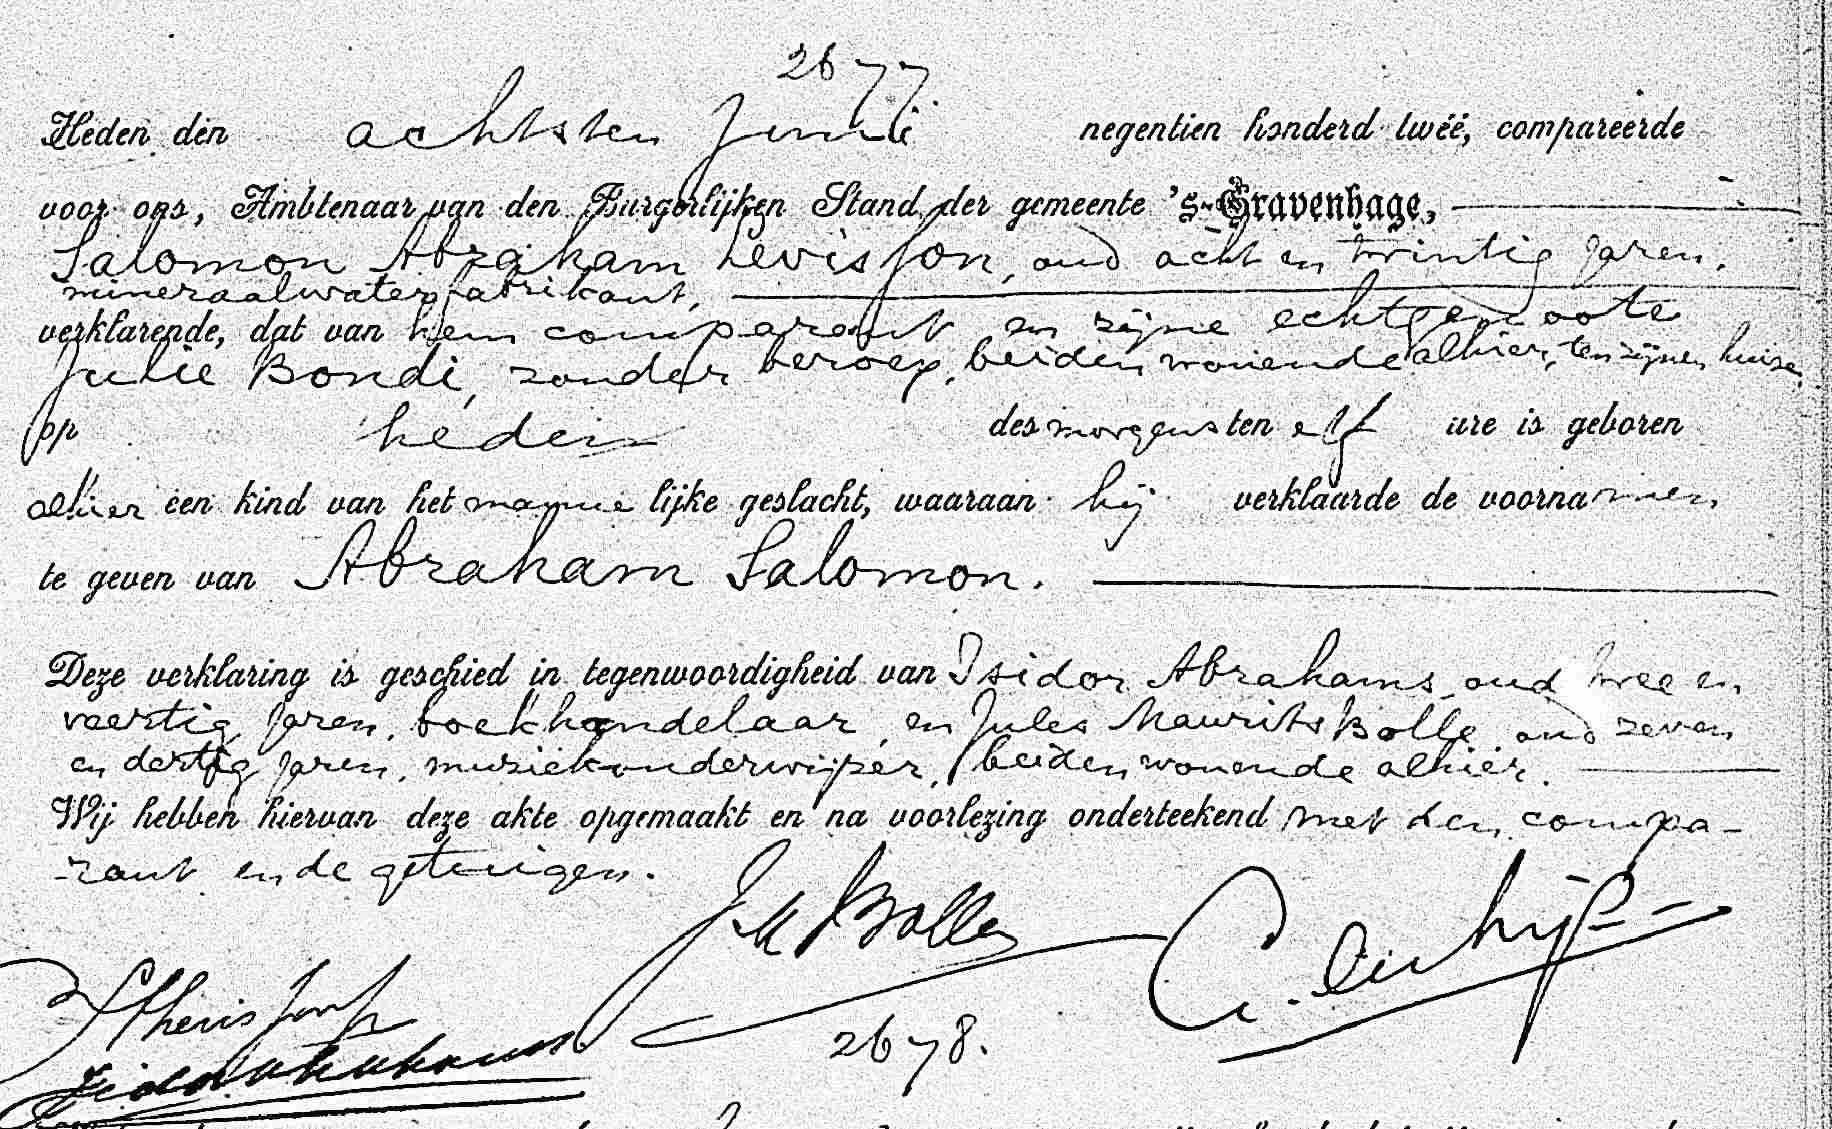 2677
Heden den achtsten Juni negentien honderd twéé, compareerde
voor ons, Ambtenaar van den Burgerlijken Stand der gemeente 's-Gravenhage,
Salomon Abraham Levisson, oud acht en twintig jaren,
mineraalwaterfabrikant,
verklarende, dat van hem comparant en zijne echtgenoote
Julie Bondi, zonder beroep, beiden wonende alhier, ten zijnen huize
op heden des morgens ten elf ure is geboren
alhier een kind van het mannelijke geslacht, waaraan hij verklaarde de voornamen
te geven van Abraham Salomon.
Deze verklaring is geschied in tegenwoordigheid van Isidor Abrahams, oud twee en
veertig jaren, boekhandelaar, en Jules Maurits Bolle, oud zeven
en dertig jaren, muziekonderwijzer, beiden wonende alhier.
Wij hebben hiervan deze akte opgemaakt en na voorlezing onderteekend met den compa-
rant en de getuigen.
JM Bolle
SALevisson
Isidor Abrahams
2678.